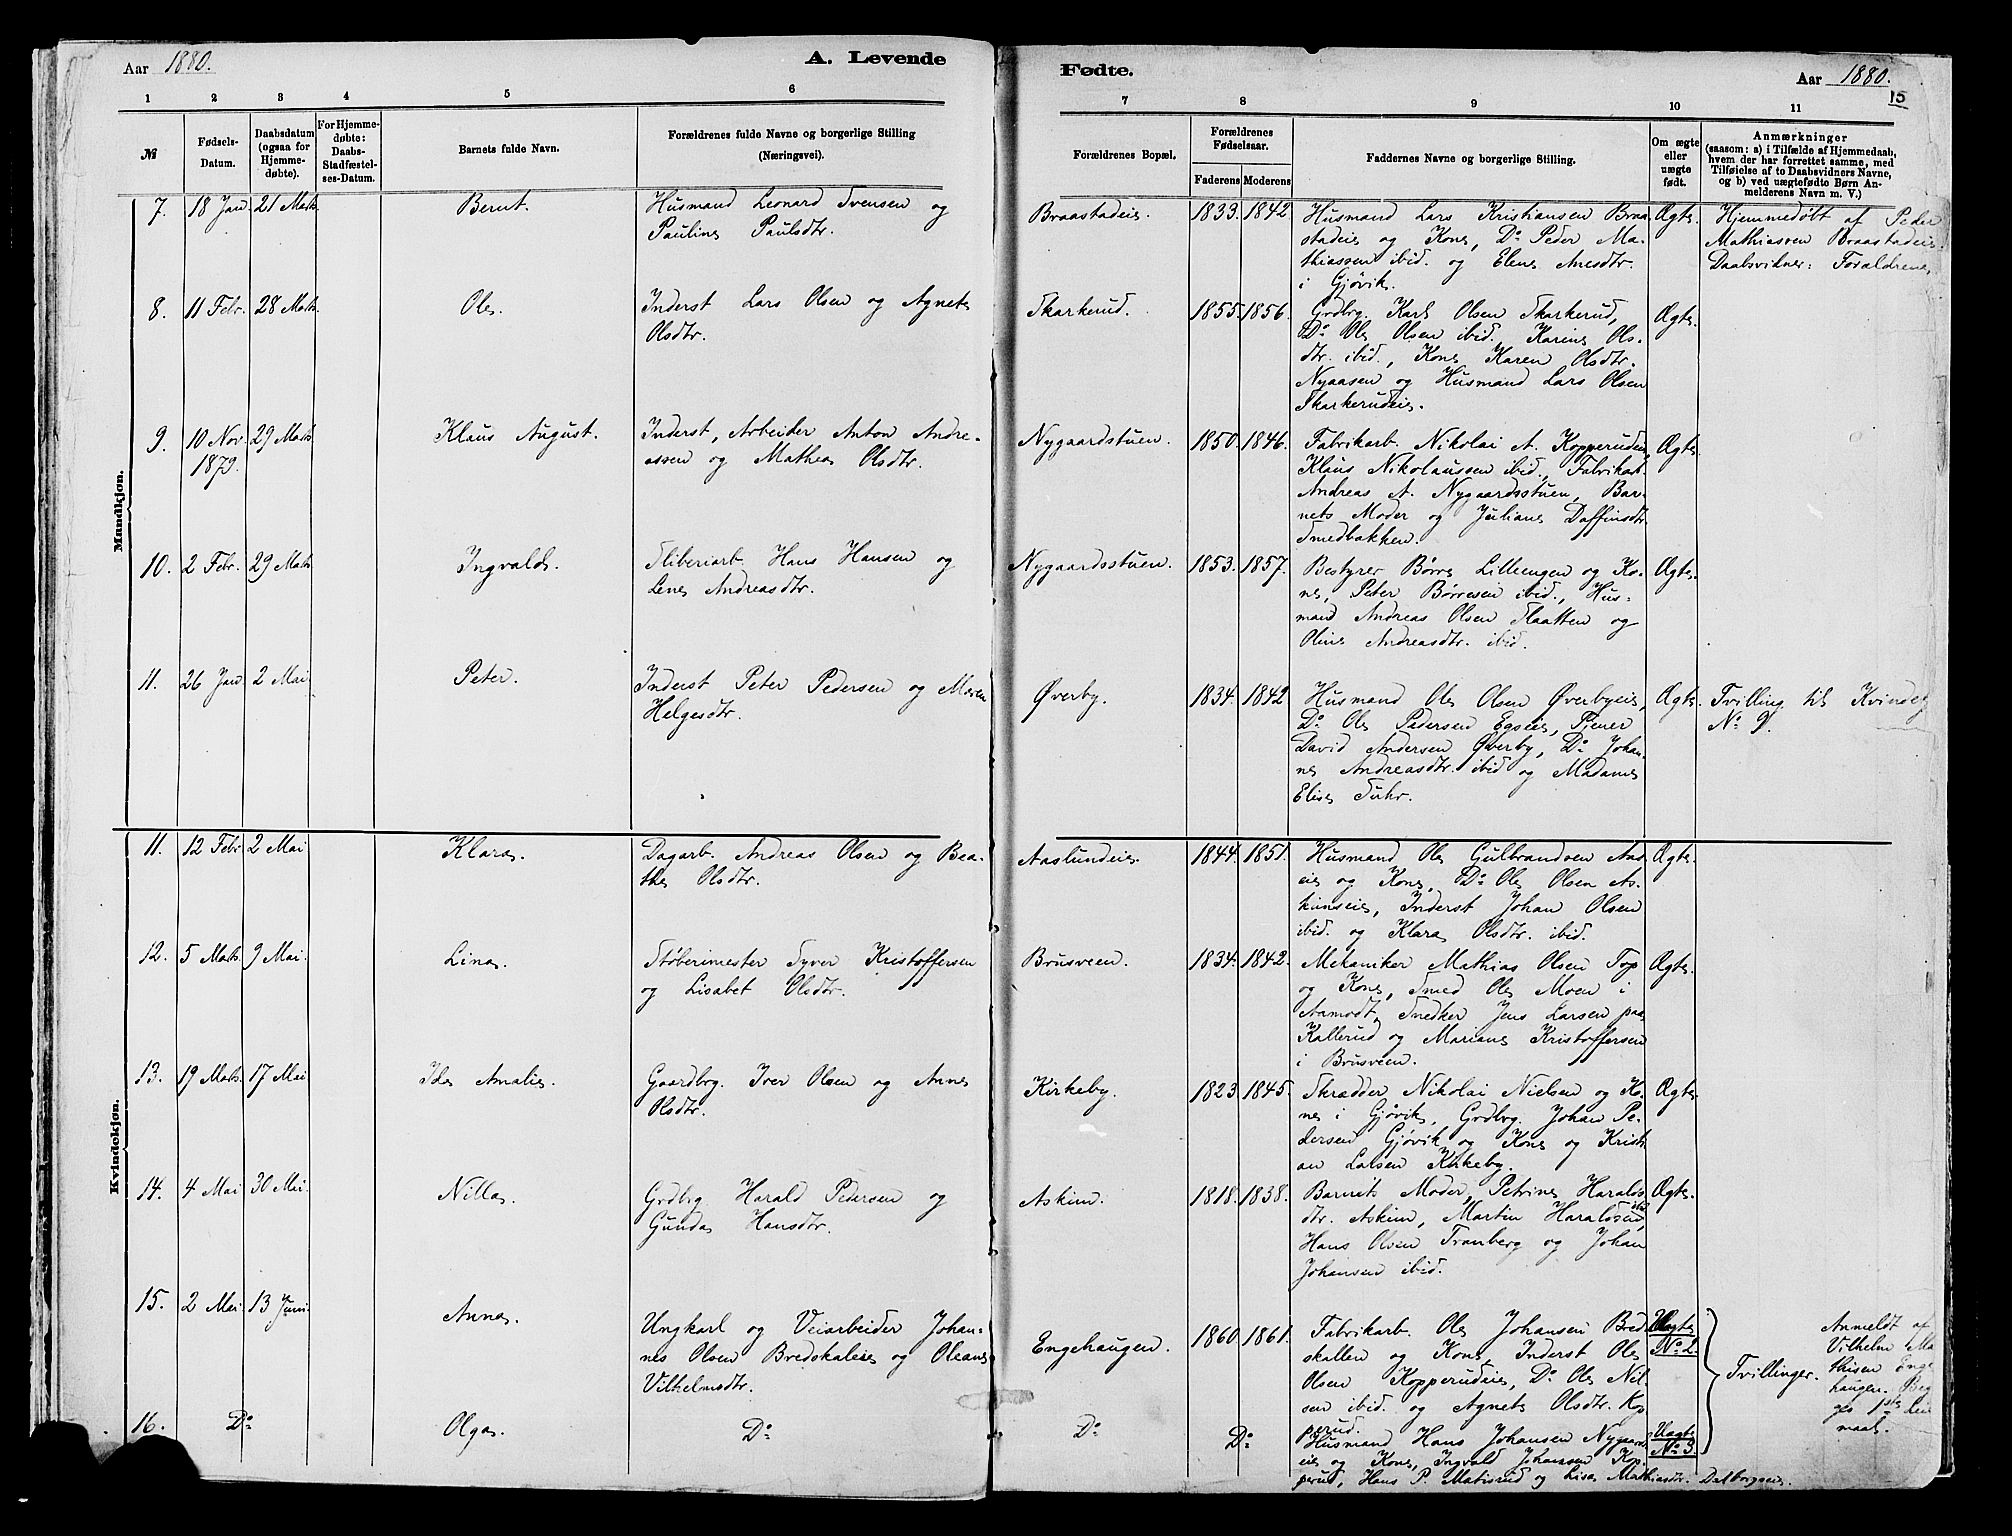 Aar 1880. A. Levende Fødte. Aar 1880.
15
1 2 3 4 5 6 7 8 9 10 11
№
Fødsels-Datum.
Daabsdatum (ogsaa for Hjemme-døbte).
For Hjemme-døbte: Daabs-Stadfæstel-ses-Datum.
Barnets fulde Navn.
Forældrenes fulde Navne og borgerlige Stilling (Næringsvei).
Forældrenes Bopæl.
Forældrenes Fødselsaar.
Faderens Moderens
Faddernes Navne og borgerlige Stilling.
Om ægte eller uægte født.
Anmærkninger
(saasom: a) i Tilfælde af Hjemmedaab,
hvem der har forrettet samme, med
Tilføielse af to Daabsvidners Navne,
og b) ved uægtefødte Børn An-
melderens Navn m. V.)
Mandkjøn.
7. 18 Jan. 21 Marts. Bernt. Husmand Leonard Svensen og
Pauline Paulsdtr.
Braastadeie. 1833. 1842 Husmand Lars Kristiansen Braa-
stadeie og Kone, Do Peder Ma-
thiassen ibid. og Elene Anesdtr.
i Gjøvik.
Ægte. Hjemmedøbt af Peder
Mathiassen Braastadeie.
Daabsvidner: Forældrene.
8. 11 Febr. 28 Marts. Ole. Inderst Lars Olsen og Agnete
Olsdtr.
Skarkerud. 1855. 1856. Grdbrg. Karl Olsen Skarkerud,
Do Ole Olsen ibid. Karine Ols-
dtr. ibid., Kone Karen Olsdtr.
Nyaasen og Husmand Lars Olsen
Skarkerudeie.
Ægte.
9. 10 Nov. 1879. 29 Marts Klaus August. Inderst, Arbeider Anton Andre-
assen og Mathea Olsdtr.
Nygaardstuen. 1850. 1846. Fabrikarb. Nikolai A. Kopperudeie,
Klaus Nikolaussen ibid., Fabrikarb.
Andreas A. Nygaardsstuen, Bar-
nets Moder og Juliane Daffinsdtr.
Smedbakken.
Ægte.
10. 2 Febr. 29 Marts Ingvald. Sliberiarb. Hans Hansen og
Lene Andreasdtr.
Nygaardsstuen. 1853. 1857. Bestyrer Børre Lillengen og Ko-
ne, Peter Børresen ibid., Hus-
mand Andreas Olsen Slaatten og
Oline Andreasdtr. ibid.
Ægte.
11. 26 Jan. 2 Mai. Peter. Inderst Peter Pedersen og Maren
Helgesdtr.
Øverby. 1834. 1842 Husmand Ole Olsen Øverbyeie,
Do Ole Pedersen Egseie, Tjener
David Andersen Øverby, Do Johan-
ne Andreasdtr. ibid og Madame
Elise Suhr.
Ægte. Tvilling til Kvindekj
No 9.
Kvindekjøn.
11. 12 Febr 2 Mai Klara. Dagarb. Andreas Olsen og Bea-
the Olsdtr.
Aaslundeie. 1844. 1851. Husmand Ole Gulbrandsen Aas-
eie og Kone, Do Ole Olsen As-
kimseie, Inderst Johan Olsen
ibid. og Klara Olsdtr. ibid.
Ægte.
12. 5 Marts. 9 Mai. Lina. Støberimester Syver Kristoffersen
og Lisabet Olsdtr.
Brusveen. 1834. 1842. Mekaniker Mathias Olsen Top
og Kone, Smed Ole Moen i
Aamodt, Snedker Jens Larsen paa
Kallerud og Mariane Kristoffersen
i Brusveen.
Ægte.
13. 19 Marts. 17 Mai Ida Amalie. Gaardbrg. Iver Olsen og Anne
Olsdtr.
Kirkeby. 1823. 1845. Skrædder Nikolai Nielsen og Ko-
ne i Gjøvik, Grdbrg. Johan Pe-
dersen Gjøvik og Kone og Kristi-
an Larsen Kirkeby.
Ægte.
14. 4 Mai 30 Mai. Nilla. Grdbrg Harald Pedersen og
Gunda Hansdtr.
Askim. 1818. 1838. Barnets Moder, Petrine Haralds-
dtr. Askim, Martin Haraldsen ibid
Hans Olsen Tranberg og Johan
Johansen ibid.
Ægte.
15. 2 Mai. 13 Juni. Anne. Ungkarl og Veiarbeider Johan-
nes Olsen Bredskaleie og Oleane
Vilhelmsdtr.
Engehaugen. 1860. 1861. Fabrikarb. Ole Johansen Bred-
skallen og Kone, Inderst Ole
Olsen Kopperudeie, Do Ole Nil-
sen ibid. og Agnete Olsdtr. Kop-
perud.
Uægte
No 2.
Tvillinger.
Anmeldt af
Vilhelm Ma
thisen Enge
haugen. Beg
ges 1ste Lei
maal.
16. Do Olga. Do Do Do
Husmand Hans Johansen Nygaards-
eie og Kone, Ingvald Johansen Kop-
perud, Hans P. Matisrud og Lise Mathiasdtr. Dalborgseie.
Uægte
No 3.